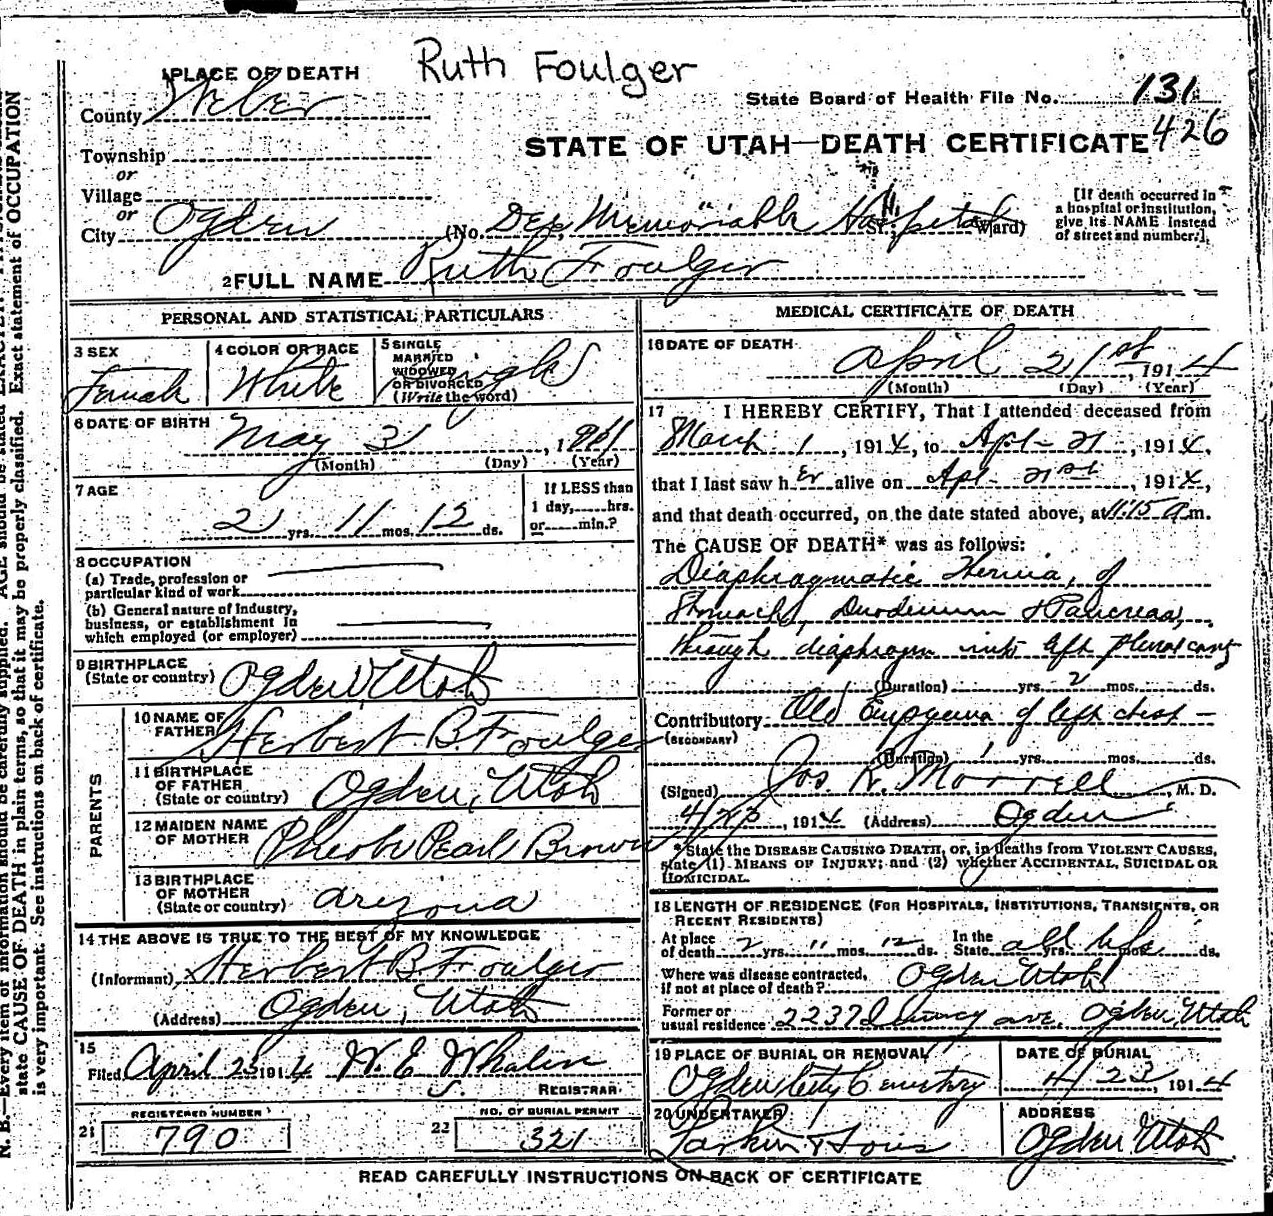 Ruth Foulger
1 PLACE OF DEATH
County Weber
State Board of Health File No. 131
426
STATE OF UTAH—DEATH CERTIFICATE
Township
or
Village
or
City Ogden
(No. Dee Memorial Hospital St. Ward)
[If death occurred in
a hospital or institution,
give its NAME instead
of street and number.]
2 FULL NAME Ruth Foulger
PERSONAL AND STATISTICAL PARTICULARS
3 SEX
Female
4 COLOR OR RACE
White
5 SINGLE
MARRIED
WIDOWED
OR DIVORCED
(Write the word)
Single
6 DATE OF BIRTH
May , 1
(Month) (Day) (Year)
7 AGE
2 yrs. 11 mos. 12 ds.
If LESS than
1 day, hrs.
or min.?
8 OCCUPATION
(a) Trade, profession or
particular kind of work
(b) General nature of Industry,
business, or establishment in
which employed (or employer)
9 BIRTHPLACE
(State or country) Ogden Utah
PARENTS
10 NAME OF
FATHER Herbert B. Foulger
11 BIRTHPLACE
OF FATHER
(State or country) Ogden, Utah
12 MAIDEN NAME
OF MOTHER Pheobe Pearl Brown
13 BIRTHPLACE
OF MOTHER
(State or country) Arizona
14 THE ABOVE IS TRUE TO THE BEST OF MY KNOWLEDGE
(Informant) Herbert B. Foulger
(Address) Ogden, Utah
15
Filed April 23 1914 W. E. Whalen
REGISTRAR.
REGISTERED NUMBER
21 790
NO. OF BURIAL PERMIT
22 321
MEDICAL CERTIFICATE OF DEATH
16 DATE OF DEATH
April 21st, 1914
(Month) (Day) (Year)
17 I HEREBY CERTIFY, That I attended deceased from
March 1, 1914, to Apl- 21, 1914,
that I last saw her alive on Apl- 21st, 1914,
and that death occurred, on the date stated above, at 11:15 a m.
The CAUSE OF DEATH* was as follows:
Diaphragmatic Hernia, of
Stomach, Duodenum & Pancreas,
through diaphragm into left pleural cavity
(Duration) yrs. 2 mos. ds.
Contributory Old Empyema of left chest -
(SECONDARY)
(Duration) 1 yrs. mos. ds.
(Signed) Jos. R. Morrell, M. D.
4/23, 1914 (Address) Ogden
*State the DISEASE CAUSING DEATH, or, in deaths from VIOLENT CAUSES,
state (1) MEANS OF INJURY; and (2) whether ACCIDENTAL, SUICIDAL OR
HOMICIDAL.
18 LENGTH OF RESIDENCE (FOR HOSPITALS, INSTITUTIONS, TRANSIENTS, OR
RECENT RESIDENTS)
At place
of death 2 yrs. 11 mos. 12 ds. In the
State all life yrs. mos. ds.
Where was disease contracted,
if not at place of death? Ogden Utah
Former or
usual residence 2237 ave. Ogden, Utah
19 PLACE OF BURIAL OR REMOVAL
Ogden City Cemetery
DATE OF BURIAL
4/23, 1914
20 UNDERTAKER
Larkin & Sons
ADDRESS
Ogden Utah
READ CAREFULLY INSTRUCTIONS ON BACK OF CERTIFICATE
N. B.—Every item of information should be carefully supplied. AGE should be stated
state CAUSE OF DEATH in plain terms, so that it may be properly classified. Exact statement of OCCUPATION
is very important. See instructions on back of certificate.